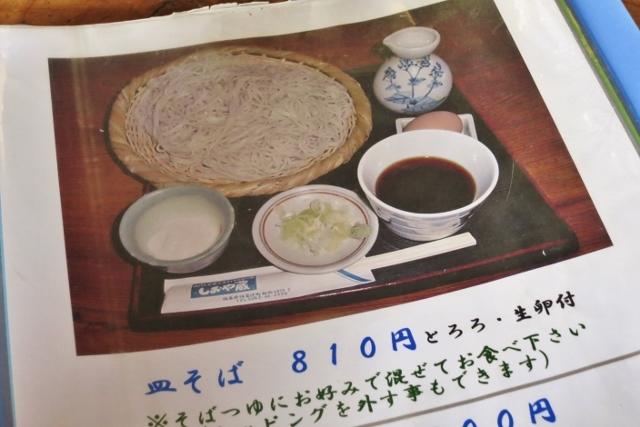 しおや蔵
皿そば 810円 とろろ・生卵付
※そばつゆにお好みで混ぜてお食べ下さい
ピングを外す事もできます)
00円